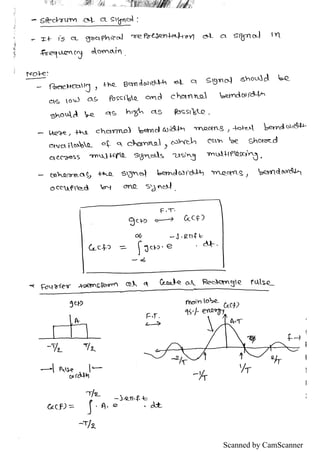 - spectrum of a signal :
- It is a graphical representation of a signal in
frequency domain.
Note:
- Practically, the Bandwidth of a signal should be
as low as possible and channel bandwidth
should be as high as possible.
- Here, the channel band width means, total bandwidth
available of a channel, which can be shared
across multiple signals using multiplexing.
- whereas, the signal bandwidth means, bandwidth
occupied by one signal.
F.T.
g(t) ⟷ G(f)
G(f) = ∫ g(t). e^{-j2πft} . dt.
∞
-∞
* Fourier transform of a Gate or Rectangle Pulse
g(t)
A.
-T/2 T/2
Pulse width
F.T.
⟷
main lobe
95% energy
G(f)
A.T
f→
-2/T
-1/T
1/T
2/T
G(f) = ∫ A. e^{-j2πft} . dt
T/2
-T/2
Scanned by CamScanner